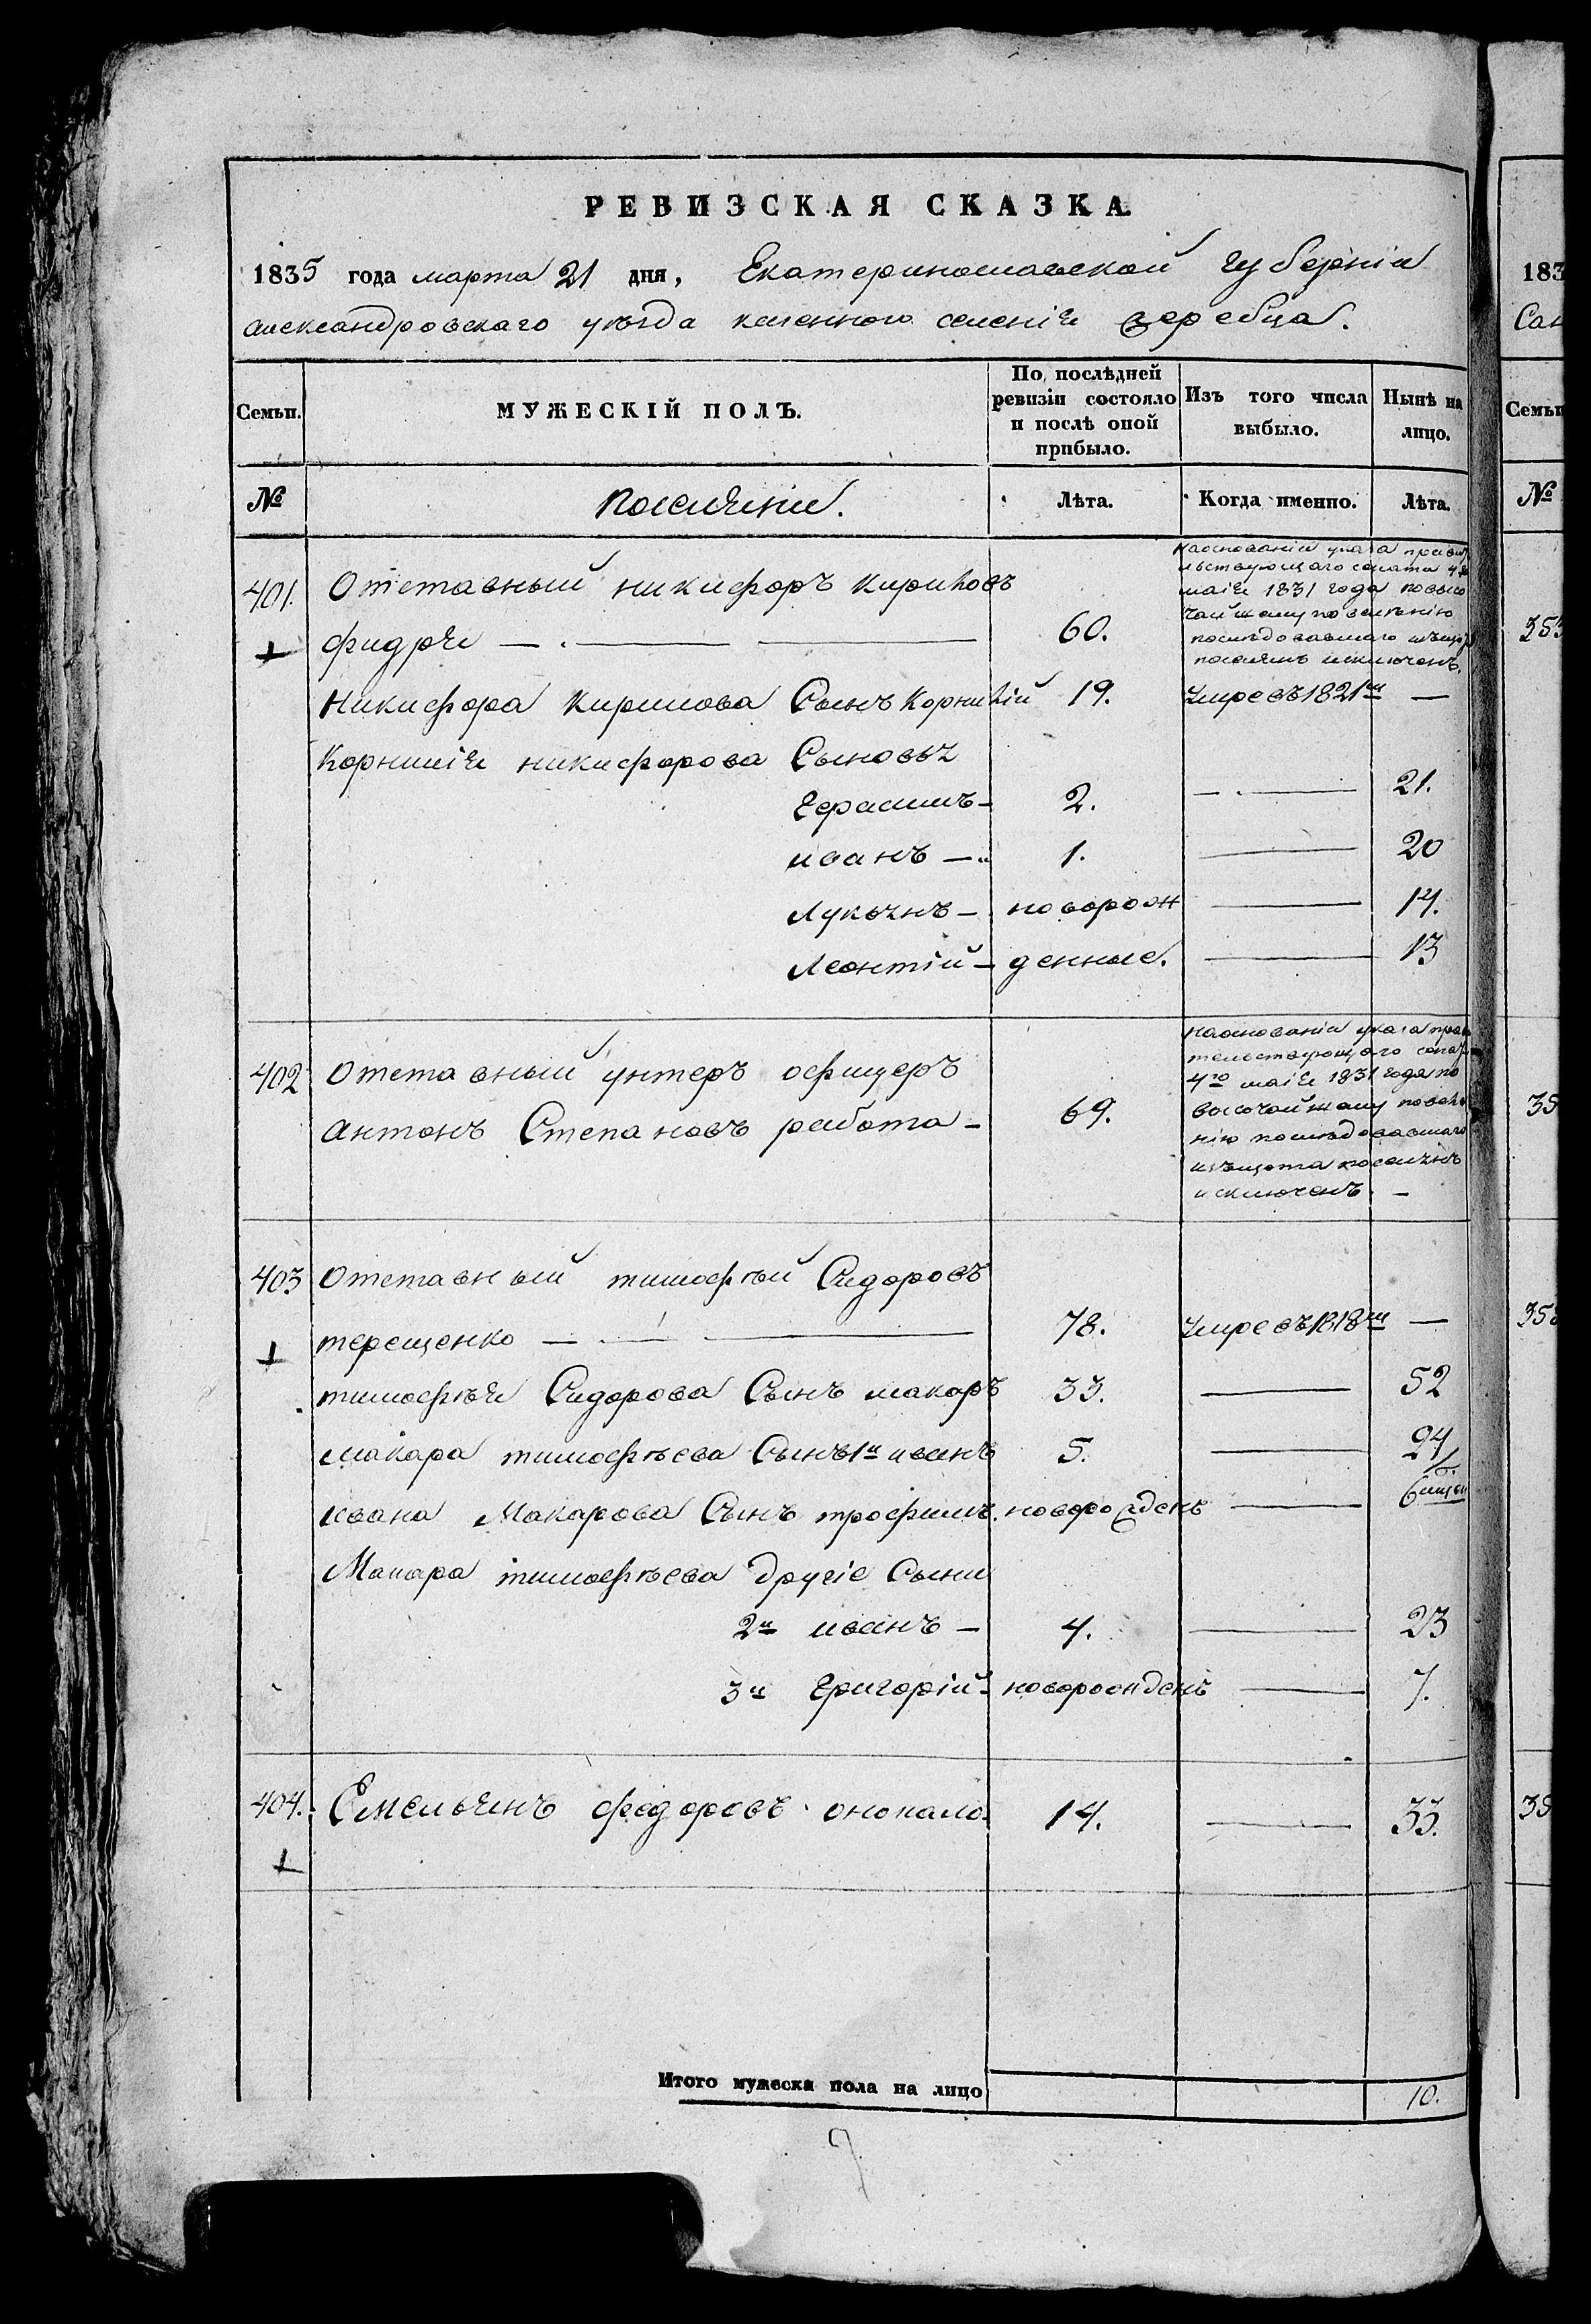 РЕВИЗСКАЯ СКАЗКА.
1835 года марта 21 дня, Екатеринославской губерніи
александровскаго уѣзда казенного селенія жеребца.
Семьи. МУЖЕСКІЙ ПОЛЪ. По послѣдней ревизіи состояло и послѣ оной прибыло. Изъ того числа выбыло. Нынѣ на лицо.
№ поселяне. Лѣта. Когда именно. Лѣта.
401. Отставный никифоръ кириловъ
фидря — 60. на основаніи указа правите
льствующаго сената 4го
маія 1831 года повысо
чайшему повелѣнію
последовавшаго изъщота
поселянъ исключенъ.
Никифора Кирилова Сынъ Корнилій 19. Умре въ 1821м —
Корнилія никифорова Сыновья
Герасимъ — 2. — 21.
иванъ — 1. — 20
Лукянъ — новорож — 14.
Леонтій — денные. — 13
402 Отставный унтеръ офицеръ
антонъ Степановъ работа — 69. на основаніи указа прави
тельствующаго сената
4го маія 1831 года по
высочайшему повеле
нію последовавшаго
изъщота поселянъ
исключенъ. —
403 Отставный тимофѣй Сидоровъ
терещенко — 78. Умре въ 1818м —
тимофѣя Сидорова Сынъ макаръ 33. — 52
макара тимофѣева Сынъ 1й иванъ 5. — 24
Ивана Макарова Сынъ трофимъ новорожденъ — 6
Макара тимофѣева другіе Сыны
2й иванъ — 4. — 23
3й Григорій — новорожденъ — 7.
404. Емельянъ федоровъ 14. — 33.
Итого мужеска пола на лицо 10.
183
Семьи
№